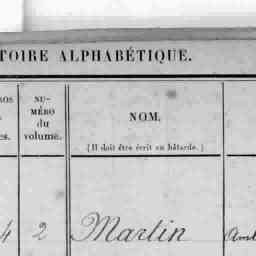 TOIRE ALPHABÉTIQUE.
ROS
es.
NU-
MÉRO
du
volume.
NOM.
(Il doit être écrit en bâtarde.)
4 2 Martin Amb